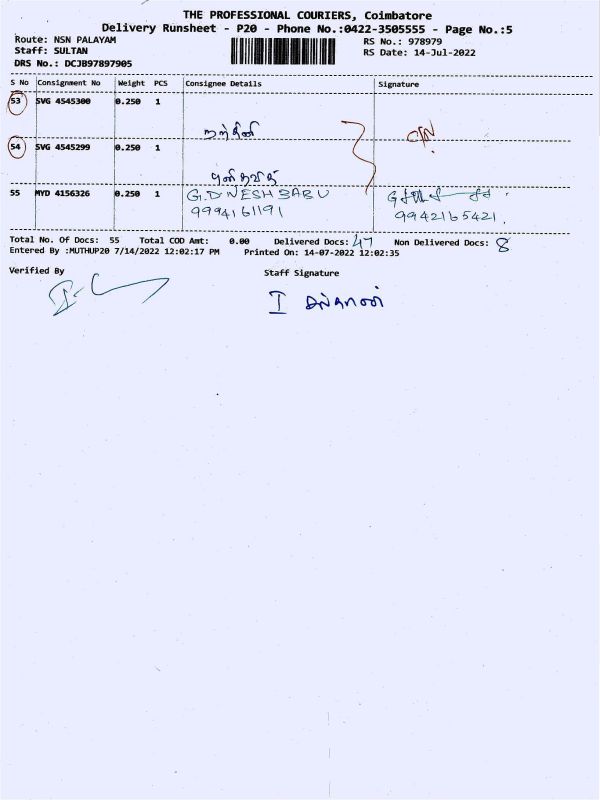 THE PROFESSIONAL COURIERS, Coimbatore
Delivery Runsheet - P20 - Phone No.:0422-3505555 - Page No.:5
Route: NSN PALAYAM RS No.: 978979
Staff: SULTAN RS Date: 14-Jul-2022
DRS No.: DCJB97897905
S No Consignment No Weight PCS Consignee Details Signature
53 SVG 4545300 0.250 1
54 SVG 4545299 0.250 1
55 MYD 4156326 0.250 1 G.DINESH BABU
9994161191 9942165421.
Total No. Of Docs: 55 Total COD Amt: 0.00 Delivered Docs: 47 Non Delivered Docs: 8
Entered By :MUTHUP20 7/14/2022 12:02:17 PM Printed On: 14-07-2022 12:02:35
Verified By Staff Signature